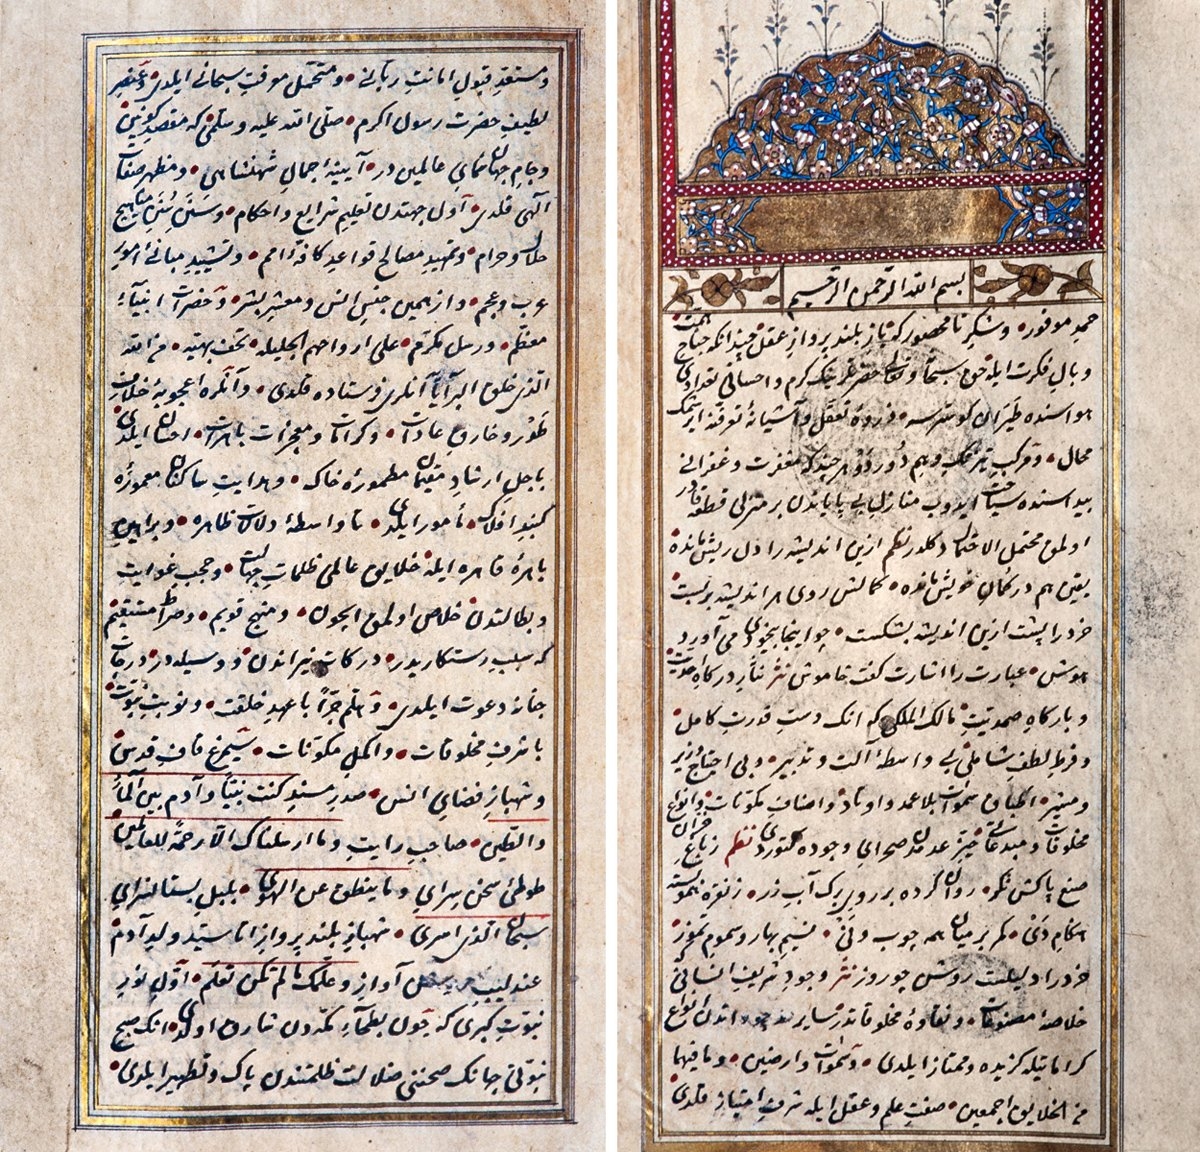 بسم الله الرحمن الرحيم
حمد موفور و شکر نامحصور که باز بلند پرواز عقل چندانکه جناح همت
و بال فکرت ایله حق سبحانه و تعالی حضرتلرینک کرم و احسانی تعدادی
هواسنده طیران کوسترسه ذروهٔ تعقل و آشیانهٔ تعرفنه ایرشمک
محال و مرکب تیزتک وهم دور و هر چند که مغفرت و غفرانی
بیداسنده سیاحت ایدوب منازل بی پایاندن بر منزلی قطعه قادر
اولمق محتمل الاحتمال دکلدر نظم ازین اندیشه را دل ریش مانده
یقین هم در کمان خویش مانده کمالش روی هر اندیشه بربست
خرد را پشت ازین اندیشه بشکست چو اینجا بیخودی می آورد
هوش عبارت را اشارت کفت خاموش نثر نثار درکاه احدیت
و بارکاه صمدیت مالک الملکی که انک دست قدرت کامل
و فرط لطف شاملی بی واسطهٔ آلت و تدبیر و بی احتیاج وزیر
و مشیر اطباق سموات بلا عمد و اوتاد و اصناف مکونات و انواع
مخلوقات و مبدعاتی حیز عدمدن صحرای وجوده کتوردی نظم
صنع پاکش نکر روان کرده بر روی برک آب زر
هنکام دی کمر بر میان همه چوب و نی نسیم بهار و سموم تموز
خرد را دلیلست روشن چو روز نثر و وجود شریف انسانی
خلاصهٔ مصنوعات و نقاوهٔ مخلوقاتدر سایر اندن انواع
کراماتیله کزیده و ممتاز ایلدی و سموات و ارضین و ما فیها
من الخلایق اجمعین صفت علم و عقل ایله شرف امتیاز قلدی
و مستعد قبول امانت ربانی و متحمل موقت سبحانی ایلدی و عنصر
لطیف حضرت رسول اکرم صلی الله علیه و سلمی که مقصد کونین
و جام جهان نمای عالمین در آیینهٔ جمال شهنشاهی و مظهر صفات
الهی قلدی اول جهتدن تعلیم شرایع و احکام و سنن سنن مناهج
حلال و حرام و تمهید مصالح قواعد کافهٔ امم و تشیید مبانیٔ امور
عرب و عجم و از همین جنس انس و معشر بشر و حضرات انبیاء
معظم و رسل مکرم علی ارواحهم الجلیله تحف بهیه من الله
الذی خلق البرایا آنلری فرستاده قلدی و آنلره اعجوبهٔ خلاف
طور و خارق عادات و کرامات و معجزات باهرات احسان ایلدی
باجل ارشاد مقیمان مطمورهٔ خاک و هدایت ساکنان معمورهٔ
کنبد افلاک مأمور ایلدی تا واسطهٔ دلالات ظاهره و براهین
باهرهٔ قاهره ایله خلایق عالمی ظلمات جهالت و حجب غوایت
و بطالتدن خلاص اولمق ایچون و منهج قویم و صراط مستقیم
که سبب رستکاریدر درکات نیراندن و وسیله در درجات
جنانه دعوت ایلدی و هلم جرا با عهد خلقت و نوبت نبوت
با شرف مخلوقات و اکمل مکونات سیمرغ قاف قدس
و شهباز فضای انس صدر مسند کنت نبیا و آدم بین الماء
و الطین صاحب رایت و ما ارسلناک الا رحمة للعالمین
طوطیٔ سخن سرای و ما ینطق عن الهوی بلبل بستان سرای
سبحان الذی اسری شهباز بلند پرواز انا سید ولد آدم
عندلیب آواز و علمک ما لم تکن تعلم اول نور
نبوت کبری که چون بطحاء مکه دن شارق اولدی انک صبح
نبوتی جهانک صحننی ضلالت ظلمتندن پاک و تطهیر ایلدی